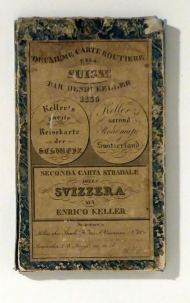 DEUXIEME CARTE ROUTIERE
DE LA
SUISSE
PAR HENRI KELLER
1856
Keller's
zweite
Reisekarte
der
SCHWEIZ
Keller's
second
Roadmap
of
Switzerland
SECONDA CARTA STRADALE
DELLA
SVIZZERA
DA
ENRICO KELLER